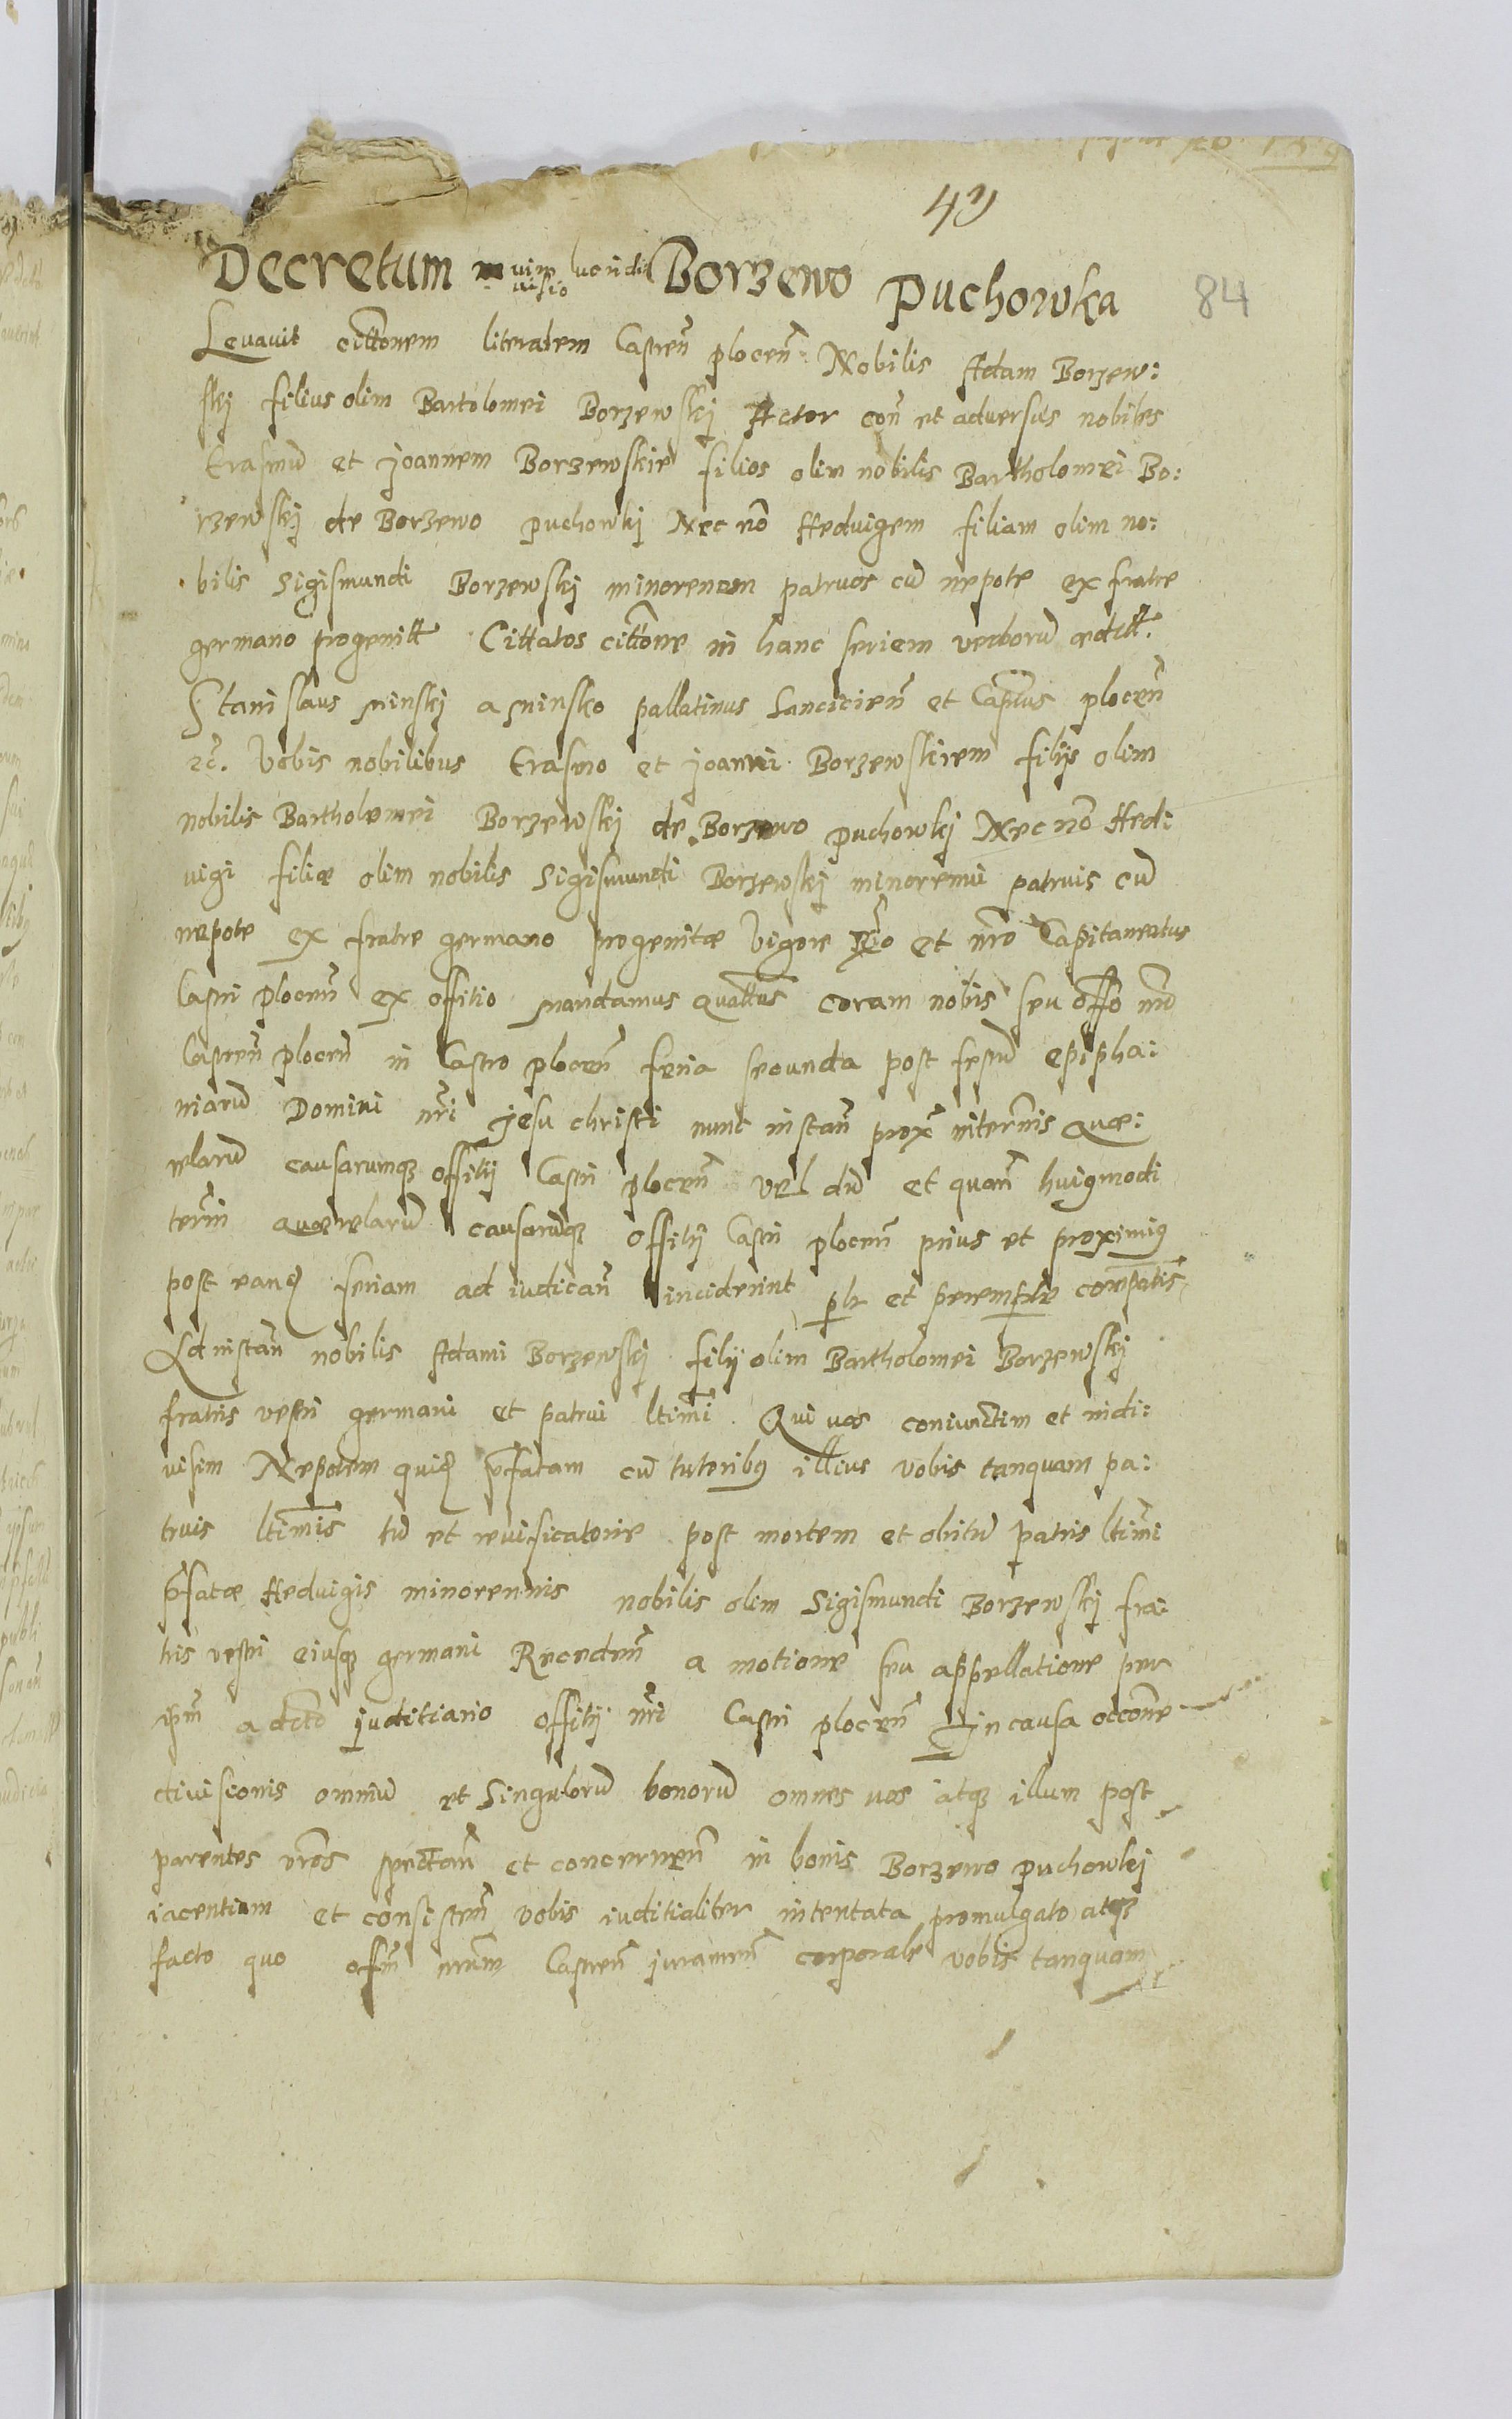 49
Decretum Borzewo Puchowka
84
Levavit cittonem literalem Castren plocen Nobilis Adam Borzew:
skj filius olim Bartolomei Borzewskj Actor con et adversus nobiles
Erasmu et Joannem Borzewskie filios olim nobilis Bartholomei Bo:
rzewskj de Borzewo puchowkj Nec no Hedvigem filiam olim no:
bilis Sigismundi Borzewskj minorenem patruos cu nepote ex fratre
germano progenitt Cittatos cittone in hanc seriem verborum
Stanislaus Minskj a Minsko pallatinus Lancicien et Captus plocen
Vobis nobilibus Erasmo et Joanni Borzewskiem filijs olim
nobilis Bartholomei Borzewskj de Borzewo puchowkj Nec no Hedi
vigi filiæ olim nobilis Sigismundi Borzewskj minorenni patruis cu
nepote ex fratre germano progenitæ vigore et nro Capitaneatus
Castri plocen ex offitio mandamus quattus coram nobis seu offo nro
Castren plocen in Castro plocen feria secunda post festu epipha:
niaru Domini nri Jesu christi nunc instan prox in terminis quæ:
relaru causarumq offitij Castri plocen vel du et quan huigmodi
termin quærelaru causaruq offitij Castri plocen prius et proximius
post eand feriam ad iudican inciderint plr et peremptorie compatis
Ad instan nobilis Adami Borzewskj filij olim Bartholomei Borzewskj
fratris vestri germani et patrui ltimi Qui vos coniunctim et indi:
visim Nepotem quid pfatam cu tutoribus illius vobis tanquam pa:
truis ltimis tu et revisicatorie post mortem et obitu patris ltimi
pfatæ Hedvigis minorennis nobilis olim Sigismundi Borzewskj fra:
tris vestri eiusq germani Receden a motione seu appellatione per
ipm a dcto juditiario offitij nri Castri plocen In causa occone
divisionis omniu et Singuloru bonoru omnes vos atq illum post
parentes vros spectan et concernen in bonis Borzewo puchowkj
iacentium et consisten vobis iuditialiter intentata promulgato atq
facto quo offm nrum Castren juramen corporale vobis tanquam